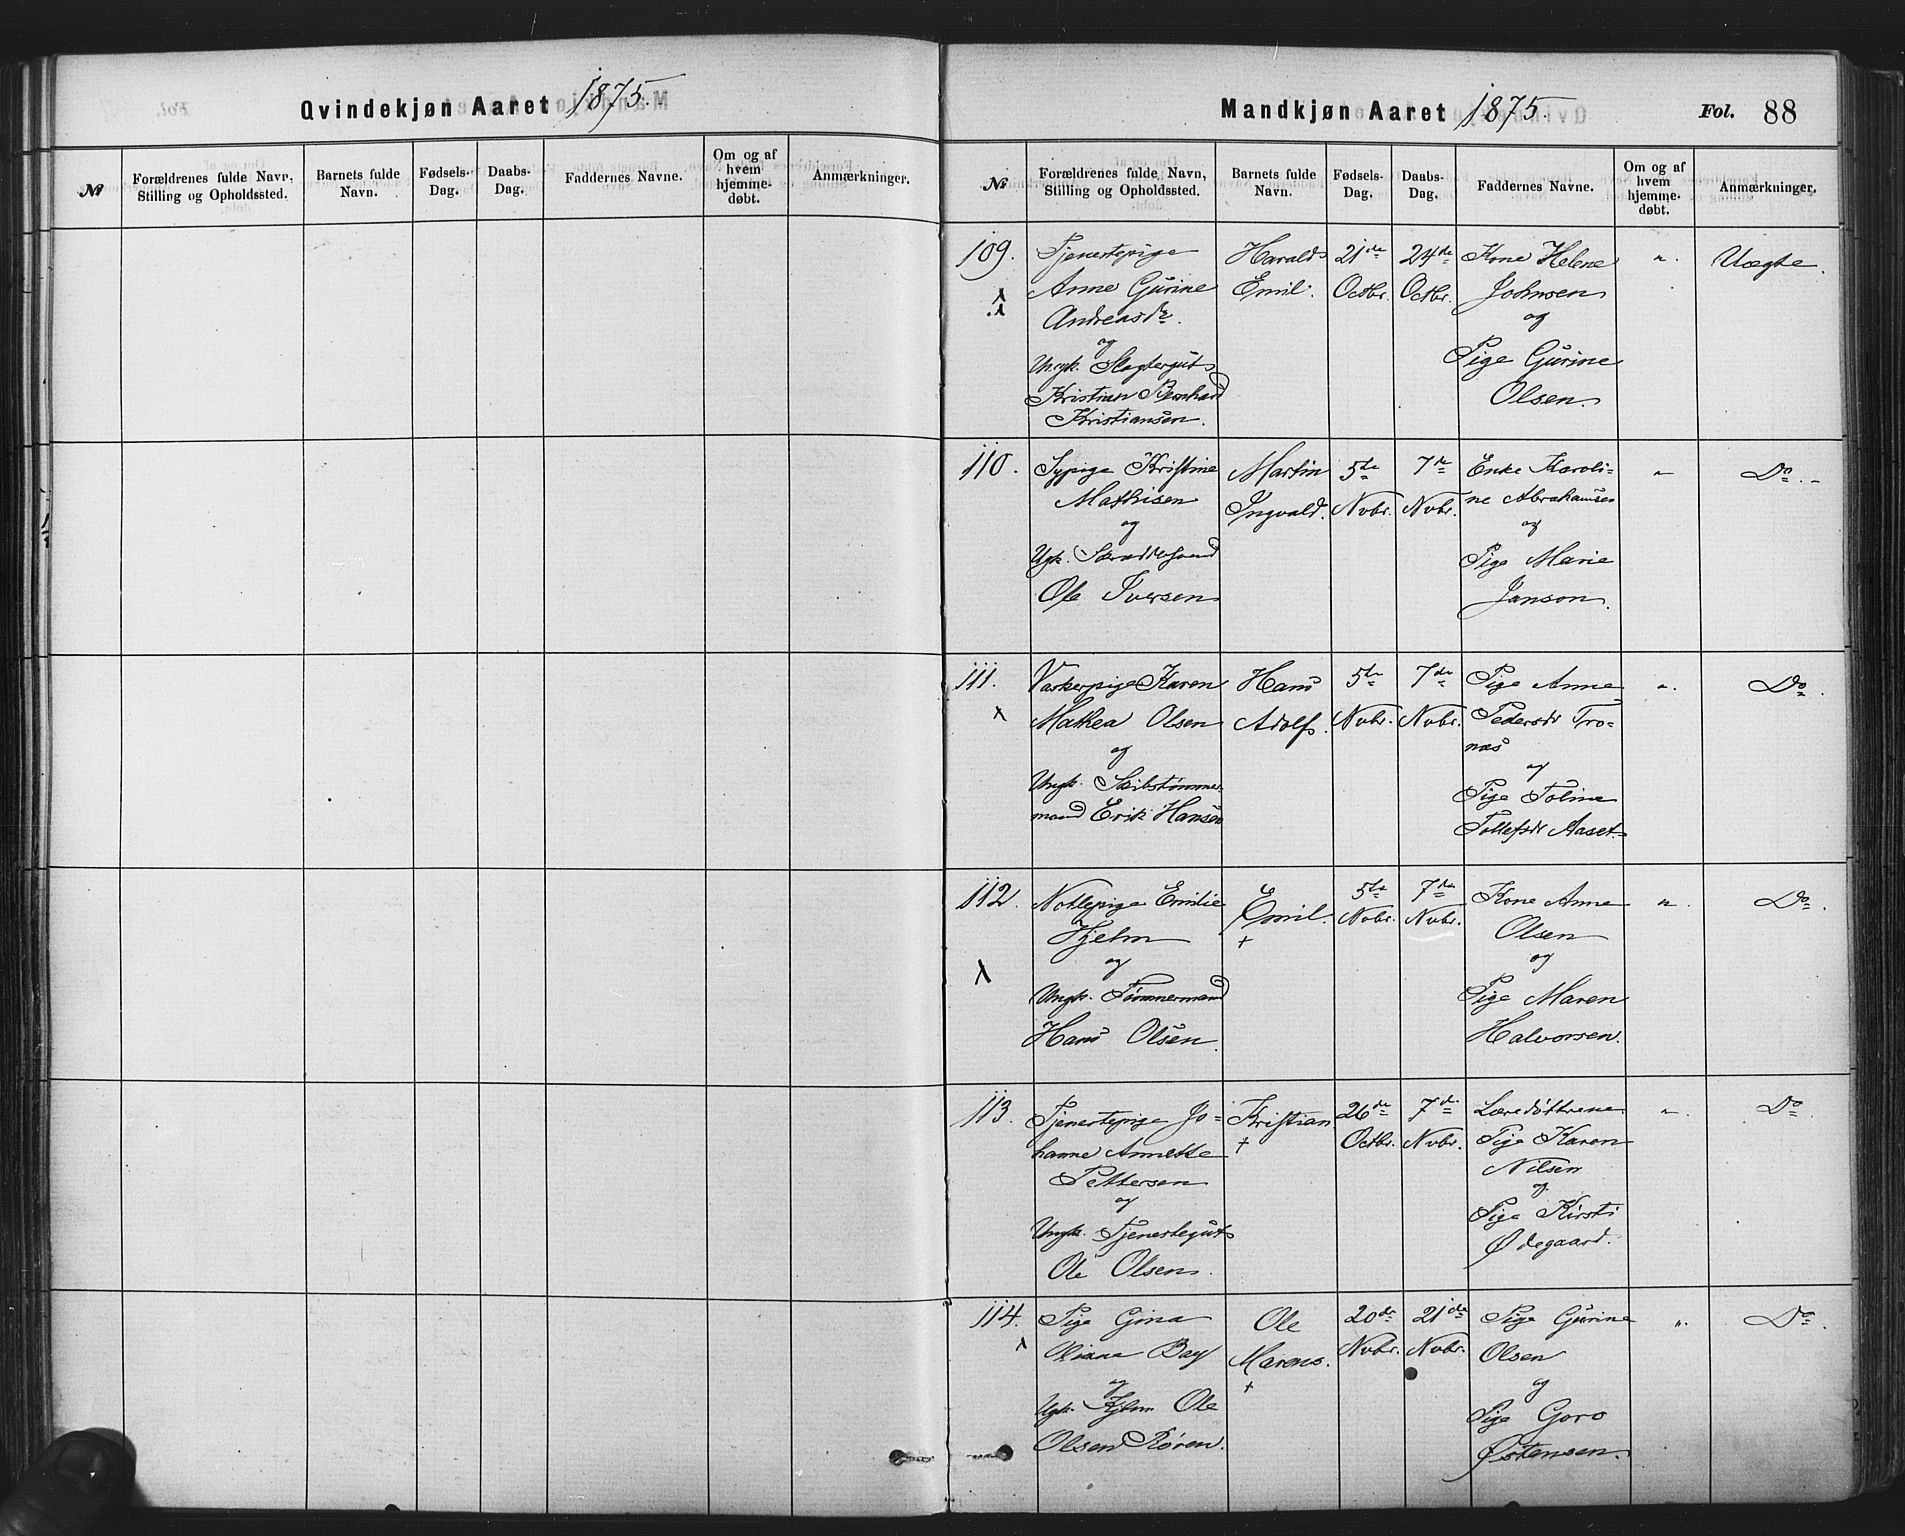 Qvindekjøn Aaret 1875.
№
Forældrenes fulde Navn,
Stilling og Opholdssted.
Barnets fulde
Navn.
Fødsels-
Dag.
Daabs-
Dag.
Faddernes Navne.
Om og af
hvem
hjemme-
døbt.
Anmærkninger.
Mandkjøn Aaret 1875.
Fol. 88
№
Forældrenes fulde Navn,
Stilling og Opholdssted.
Barnets fulde
Navn.
Fødsels-
Dag.
Daabs-
Dag.
Faddernes Navne.
Om og af
hvem
hjemme-
døbt.
Anmærkninger.
109.
Tjenestepige
Anne Gurine
Andreasdr.
og
Ungk. Slagtergut
Kristian Bernhard
Kristiansen.
Harald
Emil.
21de
Octbr.
24de
Octbr.
Kone Helene
Johnsen
og
Pige Gurine
Olsen.
".
Uægte.
110.
Sypige Kristine
Mathisen
og
Ugk. Skræddersvend
Ole Iversen
Martin
Ingvald.
5te
Nvbr.
7de
Nvbr.
Enke Karoli-
ne Abrahamsen
og
Pige Marie
Janson.
"
Do. -
111.
Vaskerpige Karen
Mathea Olsen
og
Ungk. Skibstømmer-
mand Erik Hansen
Hans
Adolf.
5te
Nvbr.
7de
Nvbr.
Pige Anne
Pedersdr Tro-
næs
og
Pige Toline
Tollefsdr Aaset.
".
Do.
112.
Pige Emilie
Hjelm
og
Ungk. Tømmermand
Hans Olsen.
Emil.
+
5te
Nvbr.
7de
Nvbr.
Kone Anne
Olsen
og
Pige Maren
Halvorsen.
".
Do.
113.
Tjenestepige Jo-
hanne Annette
Pettersen
og
Ungk. Tjenestegut
Ole Olsen.
Kristian
+
26de
Octbr.
7de
Nvbr.
Læredøttrene
Pige Karen
Nilsen
og
Pige Kirsti
Ødegaard.
".
Do
114.
Pige Gina
Bay
og
Ugk. Ole
Olsen Røren.
Ole
Marens.
+
20de
Nvbr.
21de
Nvbr.
Pige Gurine
Olsen
og
Pige Goro
Østensen.
".
Do.